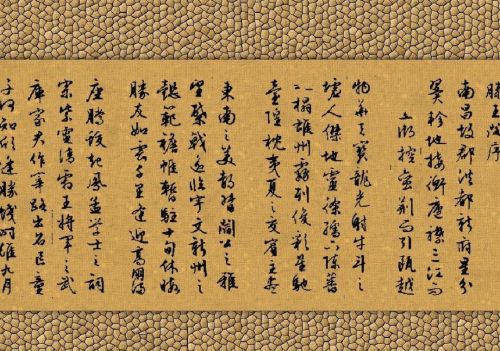 滕王阁序
南昌故郡洪都新府星分
翼軫地接衡廬襟三江而
五湖控蛮荆而引甌越
物華天寶龍光射牛斗之
墟人傑地靈徐孺下陳蕃
之榻雄州霧列俊彩星馳
臺隍枕夷夏之交賓主盡
東南之美都督閻公之雅
望棨戟遥臨宇文新州之
懿範襜帷暫駐十旬休暇
勝友如雲千里逢迎高朋滿
座騰蛟起鳳孟學士之詞
宗紫電清霜王將軍之武
庫家君作宰路出名區童
子何知躬逢勝餞时維九月